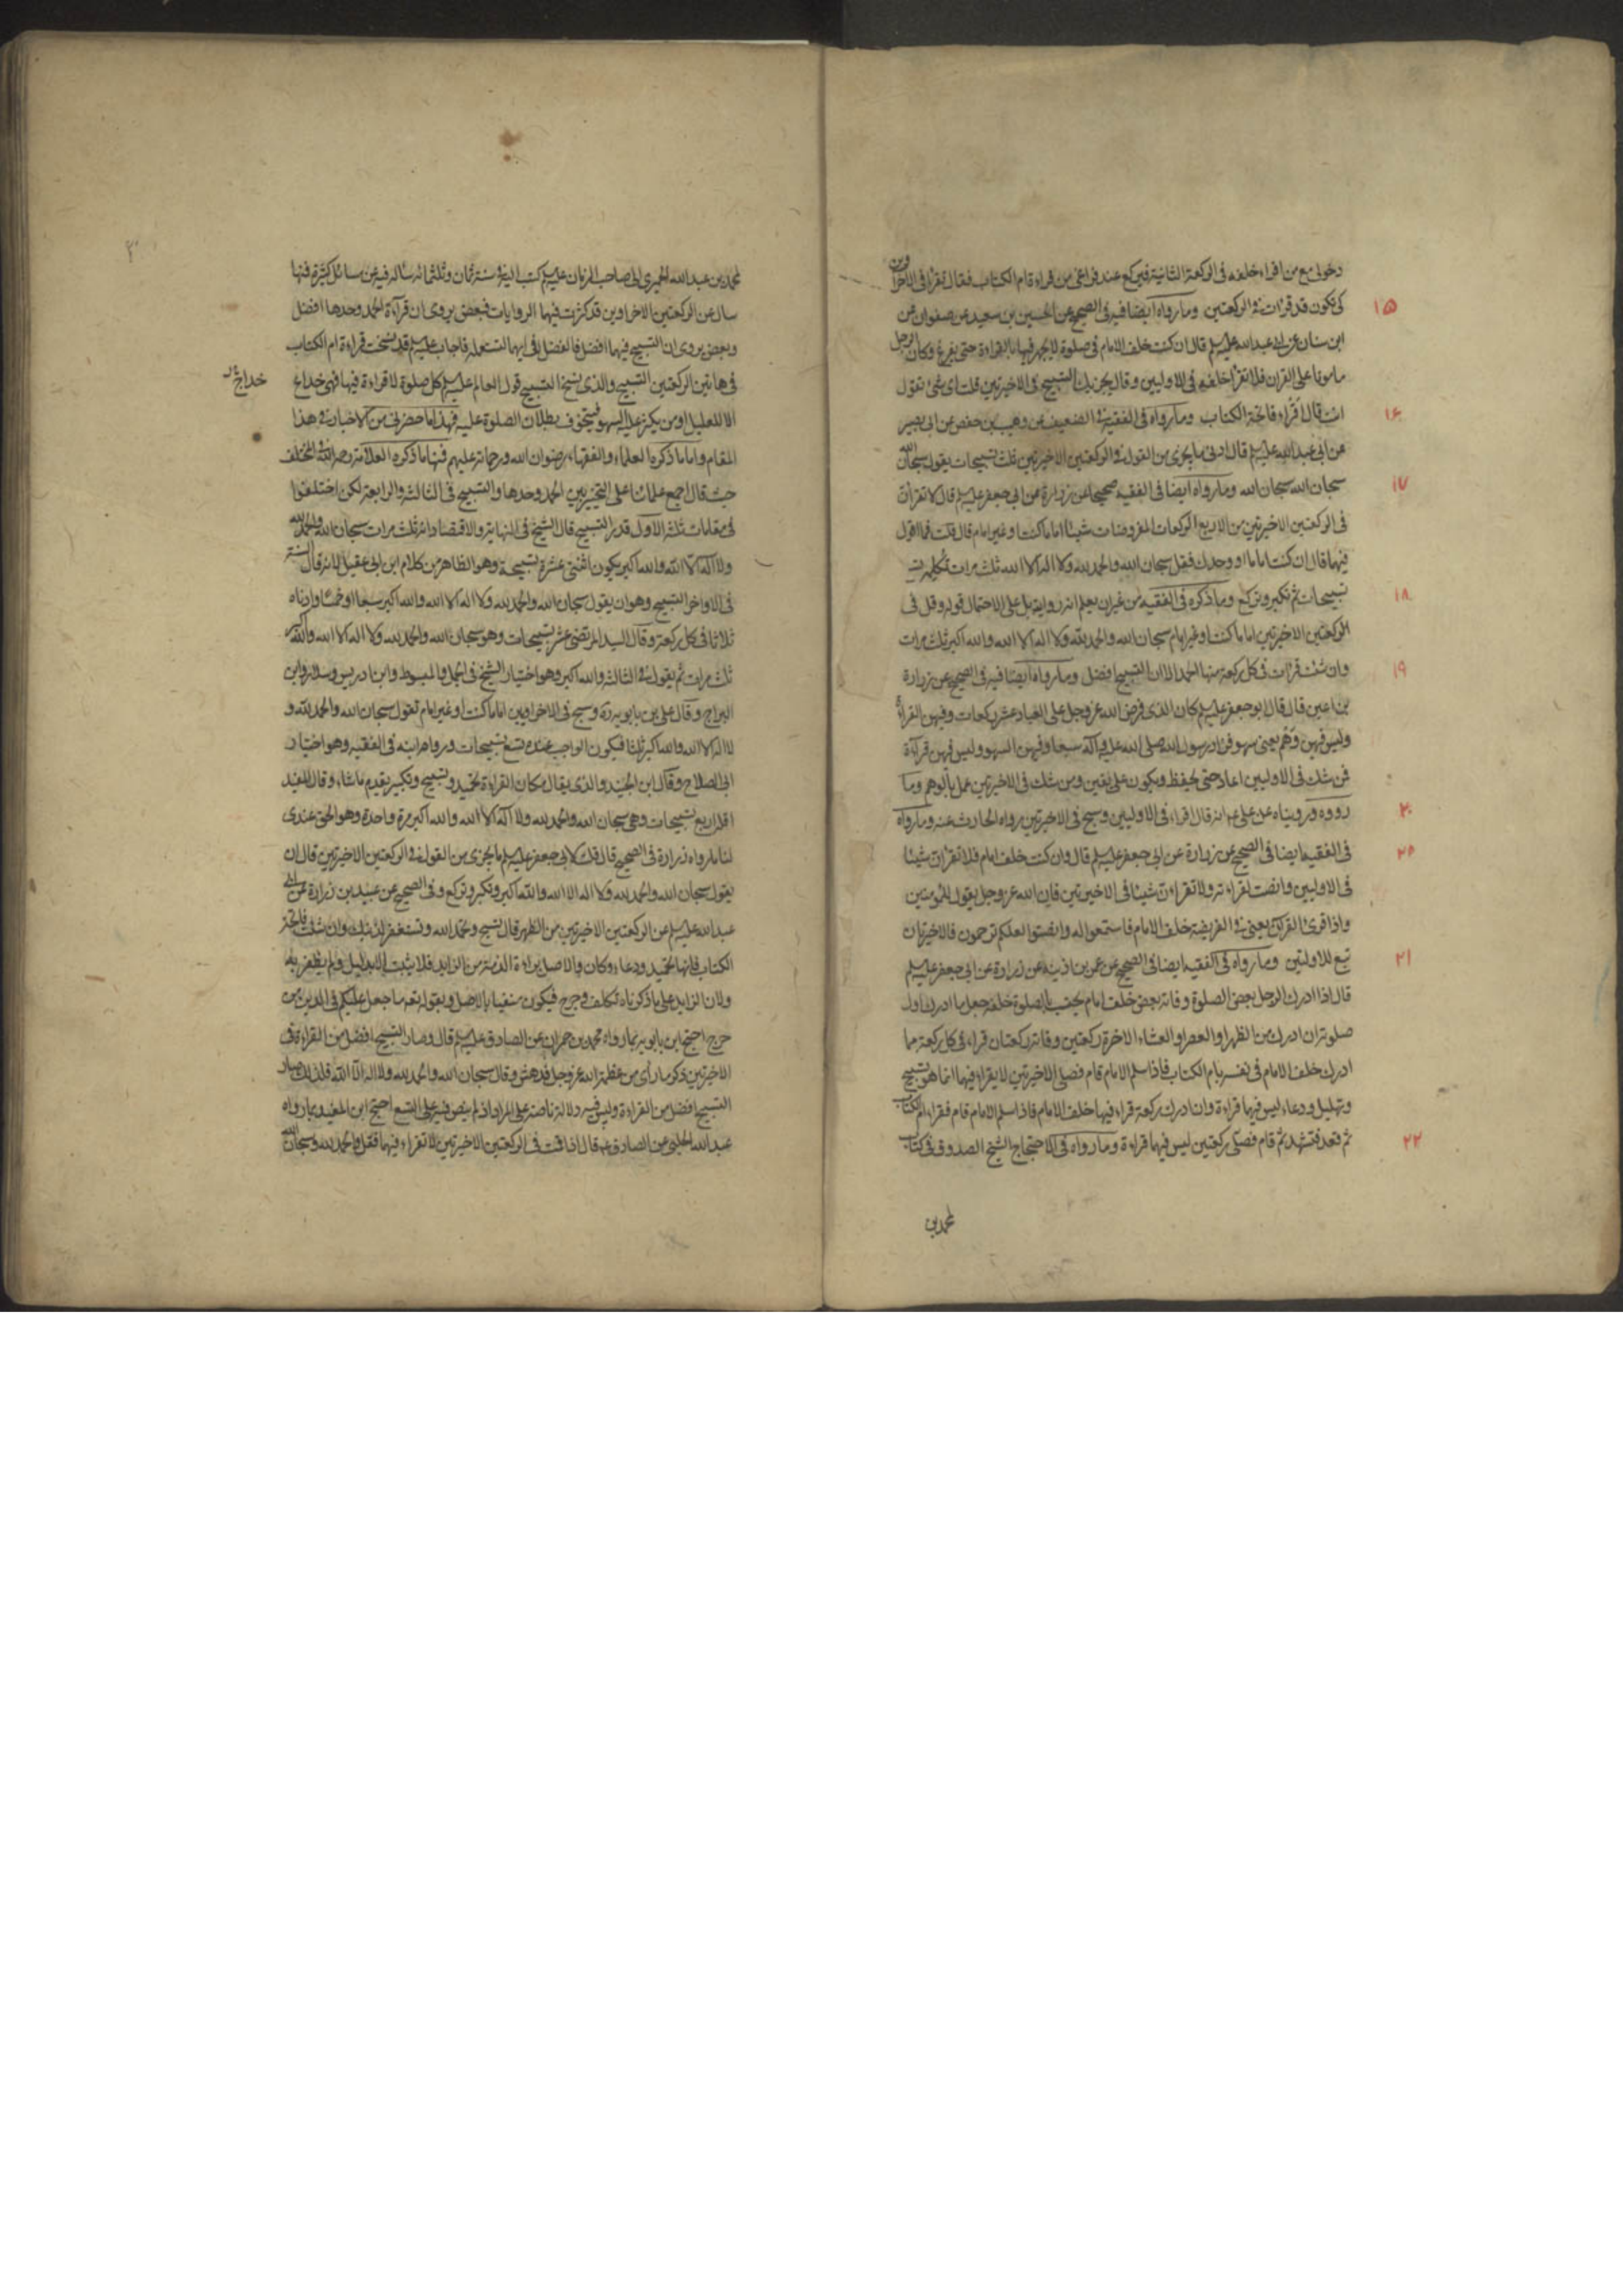 دخولى مع من اقراء خلفه فى الركعة الثانية فيركع عند فراغى من قراءة ام الكتاب فقال تقرا فى الاخراوين
١٥ كى تكون قد قرات فى الركعتين وما رواه ايضا فيه فى الصحيح عن الحسين بن سعيد عن صفوان عن
ابن سنان عن ابى عبد الله عليه السلم قال ان كنت خلف الامام فى صلوة لا يجهر فيها بالقراءة حتى يفرغ وكان الرجل
مامونا على القران فلا تقرا خلفه فى الاوليين وقال يجزيك التسبيح فى الاخيرتين قلت اى شئ تقول
١٦ انت قال اقراء فاتحة الكتاب وما رواه فى الفقيه فى الضعيف عن وهيب بن حفص عن ابى بصير
عن ابى عبد الله عليه السلم قال ادنى ما يجزى من القول فى الركعتين الاخيرتين ثلث تسبيحات يقول سبحان الله
١٧ سبحان الله سبحان الله وما رواه ايضا فى الفقيه صحيحا عن زرارة عن ابى جعفر عليه السلم قال لا تقرأن
فى الركعتين الاخيرتين من الاربع الركعات المفروضات شيئا اماما كنت او غير امام قال قلت فما اقول
فيها قال ان كنت اماما او وحدك فقل سبحان الله والحمد لله ولا اله الا الله ثلث مرات تكمله تسع
١٨ تسبيحات ثم تكبر وتركع وما ذكره فى الفقيه من غير ان يعلم انه رواية بل على الاحتمال قوله وقل فى
الركعتين الاخيرتين اماما كنت او غير امام سبحان الله والحمد لله ولا اله الا الله والله اكبر ثلث مرات
١٩ وان شئت قرات فى كل ركعة منها الحمد الا ان التسبيح افضل وما رواه ايضا فيه فى الصحيح عن زرارة
بن اعين قال قال ابو جعفر عليه السلم كان الذى فرض الله عز وجل على العباد عشر ركعات وفيهن القراءة
وليس فيهن وهم يعنى سهو فزاد رسول الله صلى الله عليه وآله سبعا وفيهن السهو وليس فيهن قراءة
فمن شك فى الاوليين اعاد حتى يحفظ ويكون على يقين ومن شك فى الاخيرتين عمل بالوهم وما
٢٠ رووه ورويناه عن على انه قال اقراء فى الاوليين وسبح فى الاخيرتين رواه الحارث عنه وما رواه
٢٥ فى الفقيه ايضا فى الصحيح عن زرارة عن ابى جعفر عليه السلم قال وان كنت خلف امام فلا تقران شيئا
فى الاوليين وانصت لقراءته ولا تقراءن شيئا فى الاخيرتين فان الله عز وجل يقول للمؤمنين
واذا قرئ القران يعنى فى الفريضة خلف الامام فاستمعوا له وانصتوا لعلكم ترحمون فالاخيرتان
٢١ تبع للاولتين وما رواه فى الفقيه ايضا فى الصحيح عن عمر بن اذينة عن زرارة عن ابى جعفر عليه السلم
قال اذا ادرك الرجل بعض الصلوة وفاته بعض خلف امام يحتسب بالصلوة خلفه جعل ما ادرك اول
صلوته ان ادرك من الظهر او العصر او العشاء الاخرة ركعتين وفاته ركعتان قراء فى كل ركعة مما
ادرك خلف الامام فى نفسه بام الكتاب فاذا سلم الامام قام فصلى الاخيرتين لا يقراء فيها انما هو تسبيح
وتهليل ودعاء ليس فيها قراءة وان ادرك ركعة قراء فيها خلف الامام فاذا سلم الامام قام فقراء ام الكتاب
٢٢ ثم قعد فتشهد ثم قام فصلى ركعتين ليس فيها قراءة وما رواه فى الاحتجاج الشيخ الصدوق فى كتاب
محمد بن
محمد بن عبد الله الحميرى الى صاحب الزمان عليه السلم كتب اليه فى سنة ثمان وثلثمائه ساله فيه عن مسائل كثيرة فيها
سال عن الركعتين الاخراوين قد كثرت فيهما الروايات فبعض يروى ان قرآءة الحمد وحدها افضل
وبعض يروى ان التسبيح فيهما افضل فالفضل لايهما لنستعمله فاجاب عليه السلم قد نسخت قراءة ام الكتاب
فى هاتين الركعتين التسبيح والذى نسخ التسبيح قول العالم عليه السلم كل صلوة لا قراءة فيها فهى خداع
خداج
الا للعليل او من يكثر عليه السهو فيتخوف بطلان الصلوة عليه فهذا ما حضرنى من الاخبار فى هذا
المقام واما ما ذكره العلماء والفقهاء رضوان الله ورحماته عليهم فمنها ما ذكره العلامة رحمه الله فى المختلف
حيث قال اجمع علمائنا على التخيير بين الحمد وحدها والتسبيح فى الثالثة والرابعة لكن اختلفوا
فى مقامات ثلثة الاول قدر التسبيح قال الشيخ فى النهاية والاقتصاد انه ثلث مرات سبحان الله والحمد لله
ولا اله الا الله والله اكبر يكون اثنتى عشرة تسبيحة وهو الظاهر من كلام ابن ابى عقيل لانه قال السنة
فى الاواخر التسبيح وهو ان يقول سبحان الله والحمد لله ولا اله الا الله والله اكبر سبعا او خمسا وادناه
ثلاثا فى كل ركعة وقال السيد المرتضى عشر تسبيحات وهو سبحان الله والحمد لله ولا اله الا الله والله اكبر
ثلث مرات ثم يقول فى الثالثة والله اكبر وهو اختيار الشيخ فى الجمل والمبسوط وابن ادريس وسلار وابن
البراج وقال على بن بابويه ره وسبح فى الاخراوين اماما كنت او غير امام تقول سبحان الله والحمد لله و
لا اله الا الله والله اكبر ثلثا فيكون الواجب عنده تسع تسبيحات ورواه ابنه فى الفقيه وهو اختيار
ابى الصلاح وقال ابن الجنيد والذى يقال مكان القراءة تحميد وتسبيح وتكبير يقدم ما شاء وقال المفيد
اقله اربع تسبيحات وهى سبحان الله والحمد لله ولا اله الا الله والله اكبر مرة واحدة وهو الحق عندى
لنا ما رواه زرارة فى الصحيح قال قلت لابى جعفر عليه السلم ما يجزى من القول فى الركعتين الاخيرتين قال ان
يقول سبحان الله والحمد لله ولا اله الا الله والله اكبر وتكبر وتركع وفى الصحيح عن عبيد بن زرارة عن ابى
عبد الله عليه السلم عن الركعتين الاخيرتين من الظهر قال تسبح وتحمد الله وتستغفر لذنبك وان شئت فاتحة
الكتاب فانها تحميد ودعاء وكان والاصل براءة الذمة من الزايد فلا يثبت الا بدليل ولم يظفر به
ولان الزايد على ما ذكرناه تكلف وحرج فيكون منفيا بالاصل وبقوله تعه ما جعل عليكم فى الدين من
حرج احتج ابن بابويه بما رواه محمد بن حمران عن الصادق عليه السلم قال وصار التسبيح افضل من القراءة فى
الاخيرتين ذكر ما رأى من عظمة الله عز وجل فدهش وقال سبحان الله والحمد لله ولا اله الا الله فلذلك صار
التسبيح افضل من القراءة وليس فيه دلالة ناصة على المراد اذ لم ينص فيه على التسع احتج ابن المفيد بما رواه
عبد الله الحلبى عن الصادق ع قال اذا قمت فى الركعتين الاخيرتين لا تقراء فيهما فقل الحمد لله وسبحان الله